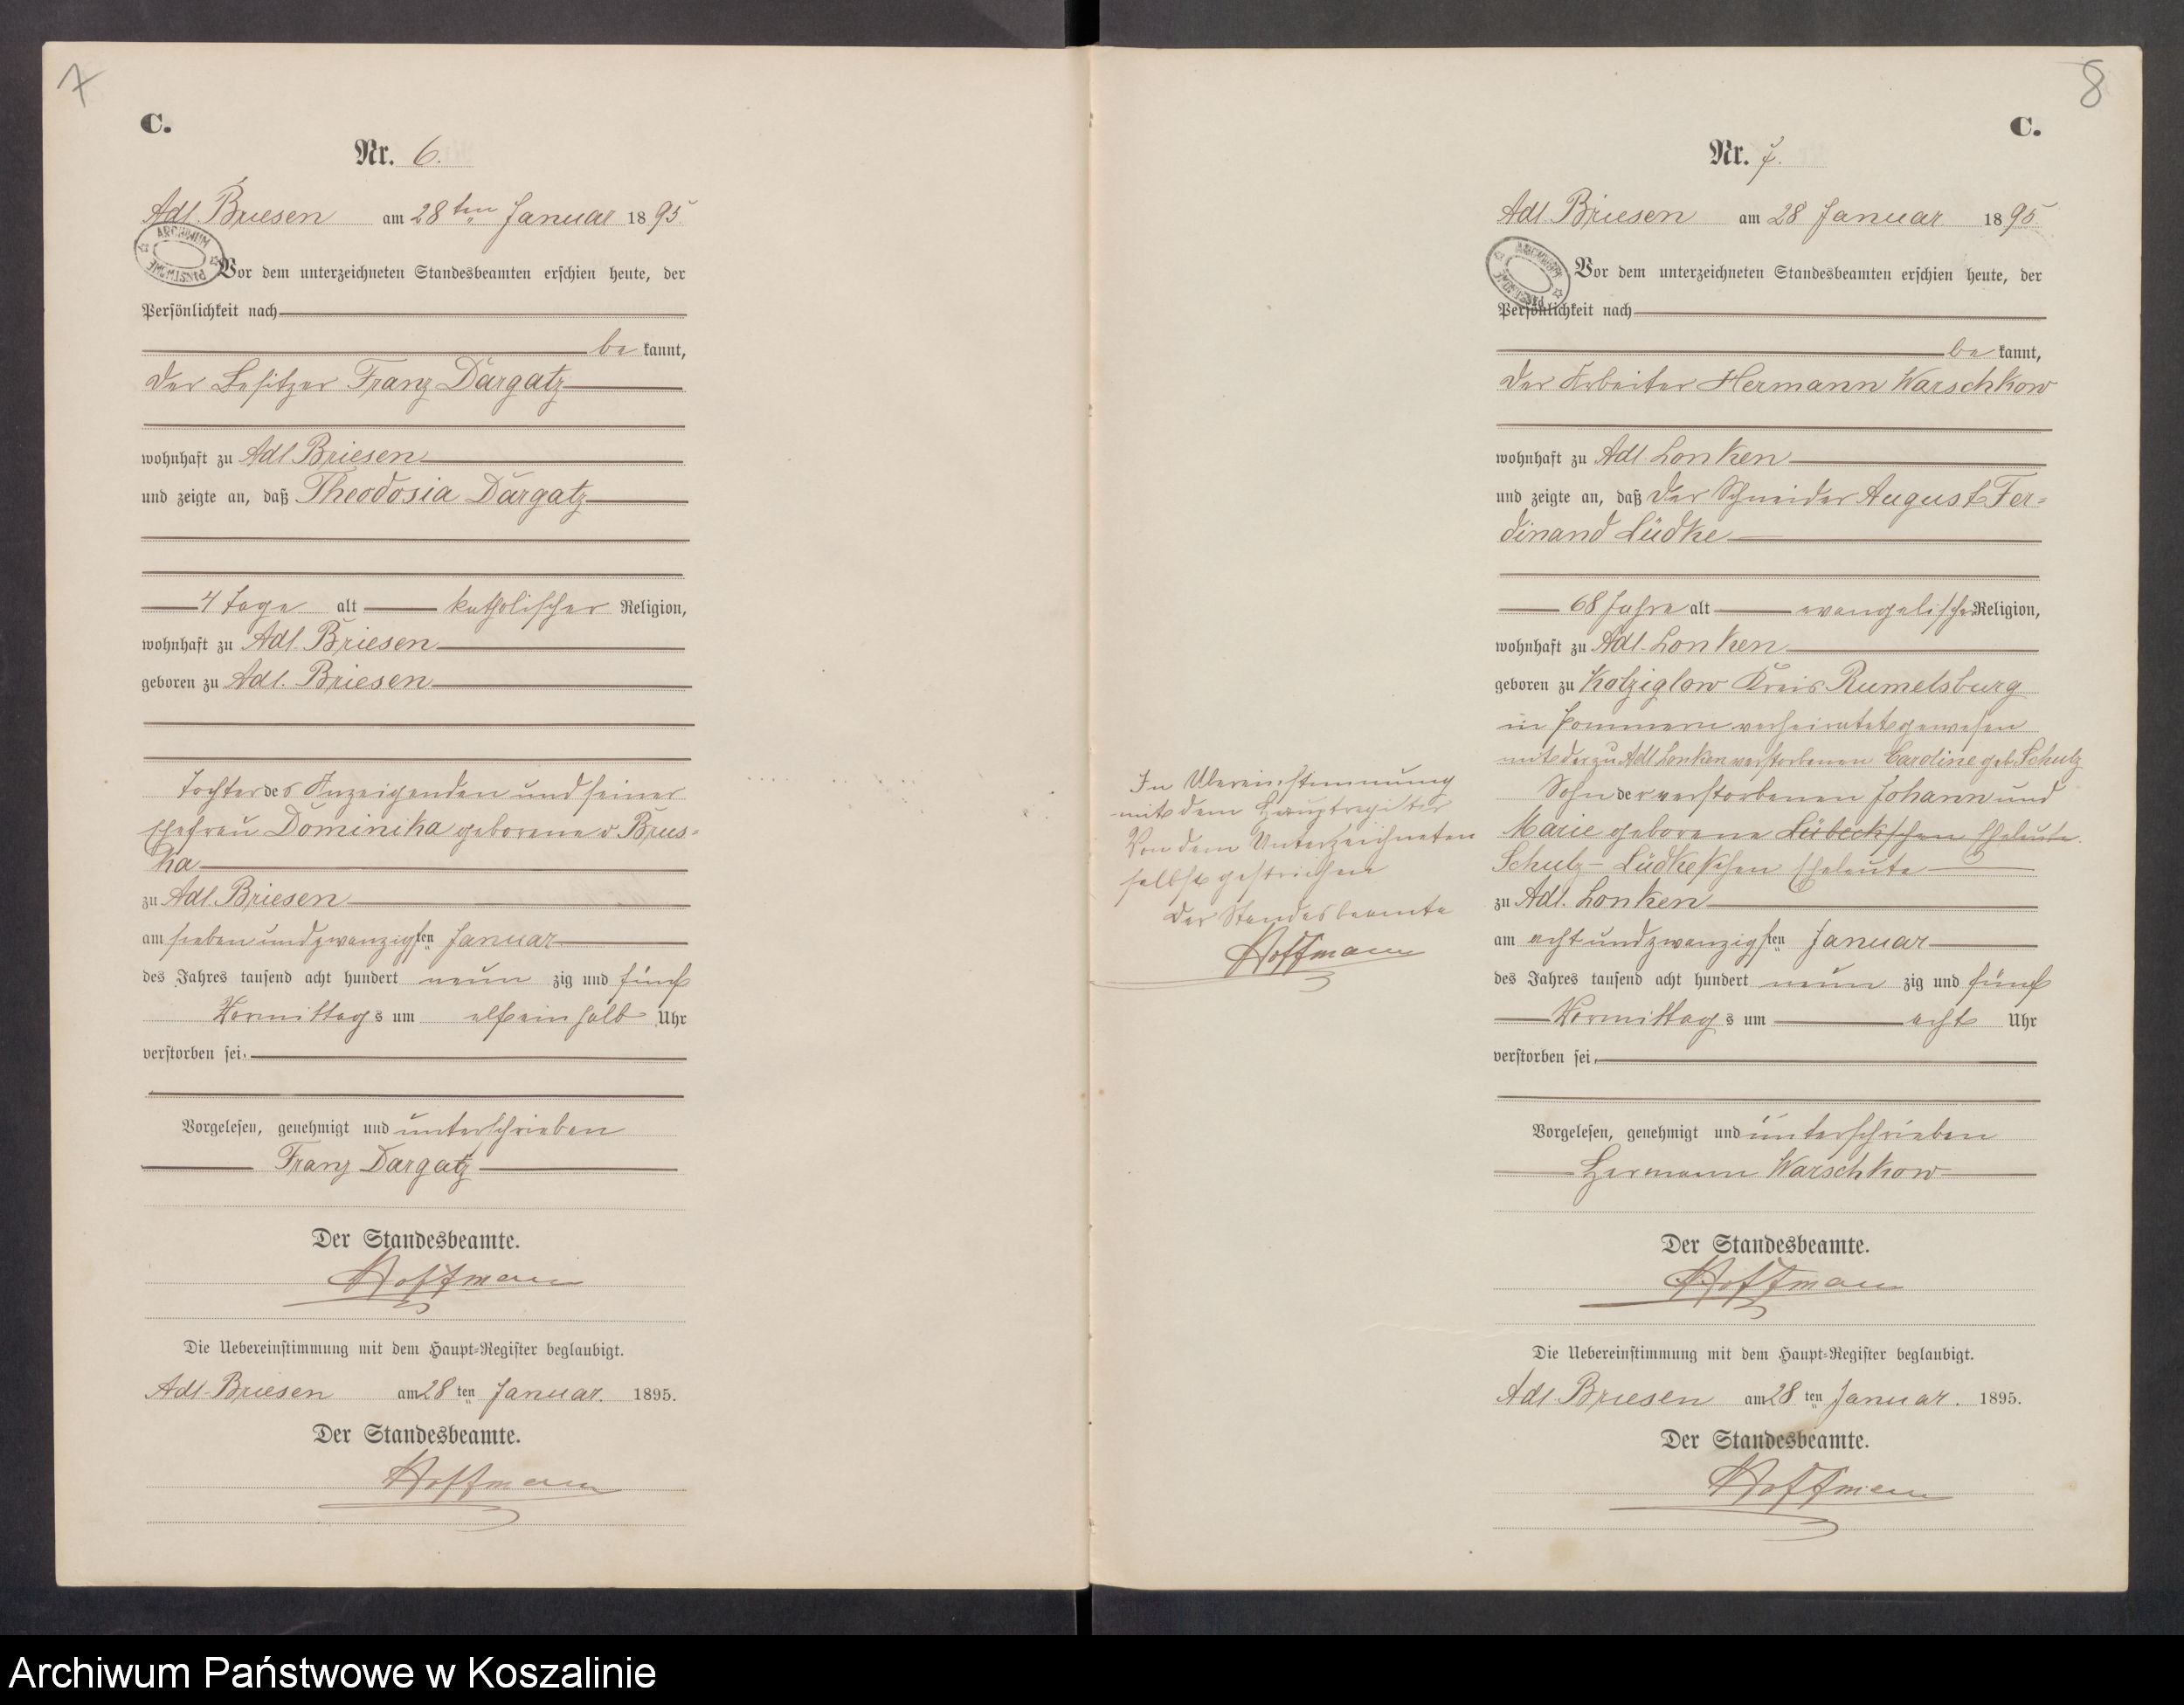 7
C.
Nr. 6.
Adl. Briesen am 28ten Januar 1895
ARCHIWUM PAŃSTWOWE
Vor dem unterzeichneten Standesbeamten erschien heute, der
Persönlichkeit nach
be kannt,
der Besitzer Franz Dargatz
wohnhaft zu Adl. Briesen
und zeigte an, daß Theodosia Dargatz
4 Tage alt katholischer Religion,
wohnhaft zu Adl. Briesen
geboren zu Adl. Briesen
Tochter des Anzeigenden und seiner
Ehefrau Dominika geborene v Brus-
ka
zu Adl. Briesen
am sieben und zwanzigsten Januar
des Jahres tausend acht hundert neun zig und fünf
Vormittags um elf ein halb Uhr
verstorben sei.
Vorgelesen, genehmigt und unterschrieben
Franz Dargatz
Der Standesbeamte.
Hoffmann
Die Uebereinstimmung mit dem Haupt-Register beglaubigt.
Adl. Briesen am 28 ten Januar. 1895.
Der Standesbeamte.
Hoffmann
8
C.
Nr. 7.
Adl. Briesen am 28 Januar 1895
ARCHIWUM PAŃSTWOWE
Vor dem unterzeichneten Standesbeamten erschien heute, der
Persönlichkeit nach
be kannt,
der Arbeiter Hermann Warschkow
wohnhaft zu Adl. Lonken
und zeigte an, daß der Schneider August Fer-
dinand Lüdke
68 Jahre alt evangelischer Religion,
wohnhaft zu Adl. Lonken
geboren zu Kolziglow Kreis Rumelsburg
in Pommern verheiratet gewesen
mit der zu Adl Lonken verstorbenen Caroline geb. Schulz
Sohn der verstorbenen Johann und
Marie geborene Lübeckschen Eheleute.
Schulz - Lüdkeschen Eheleute
zu Adl. Lonken
am acht und zwanzigsten Januar
des Jahres tausend acht hundert neun zig und fünf
Vormittags um acht Uhr
verstorben sei,
Vorgelesen, genehmigt und unterschrieben
Hermann Warschkow
Der Standesbeamte.
Hoffmann
Die Uebereinstimmung mit dem Haupt-Register beglaubigt.
Adl. Briesen am 28 ten Januar. 1895.
Der Standesbeamte.
Hoffmann
In Übereinstimmung
mit dem Hauptregister
Von dem Unterzeichneten
selbst gestrichen
Der Standesbeamte
Hoffmann
Archiwum Państwowe w Koszalinie